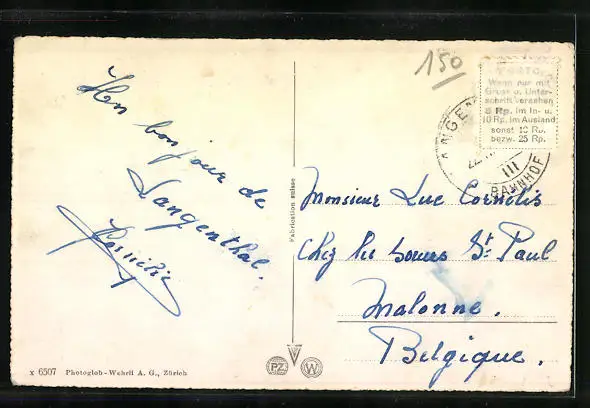 150
PORTO
Wenn nur mit
Gruss u. Unter-
schrift versehen
5 Rp. im In- u.
10 Rp. im Ausland
sonst 10 Rp.
bezw. 25 Rp.
ANGEN
III
BAHNHOF
bonjour de
Langenthal.
Cornelis
Fabrication suisse
Monsieur Luc Cornelis
Chez les Soeurs St Paul
Malonne.
Belgique.
x 6507 Photoglob-Wehrli A. G., Zürich
PZ W